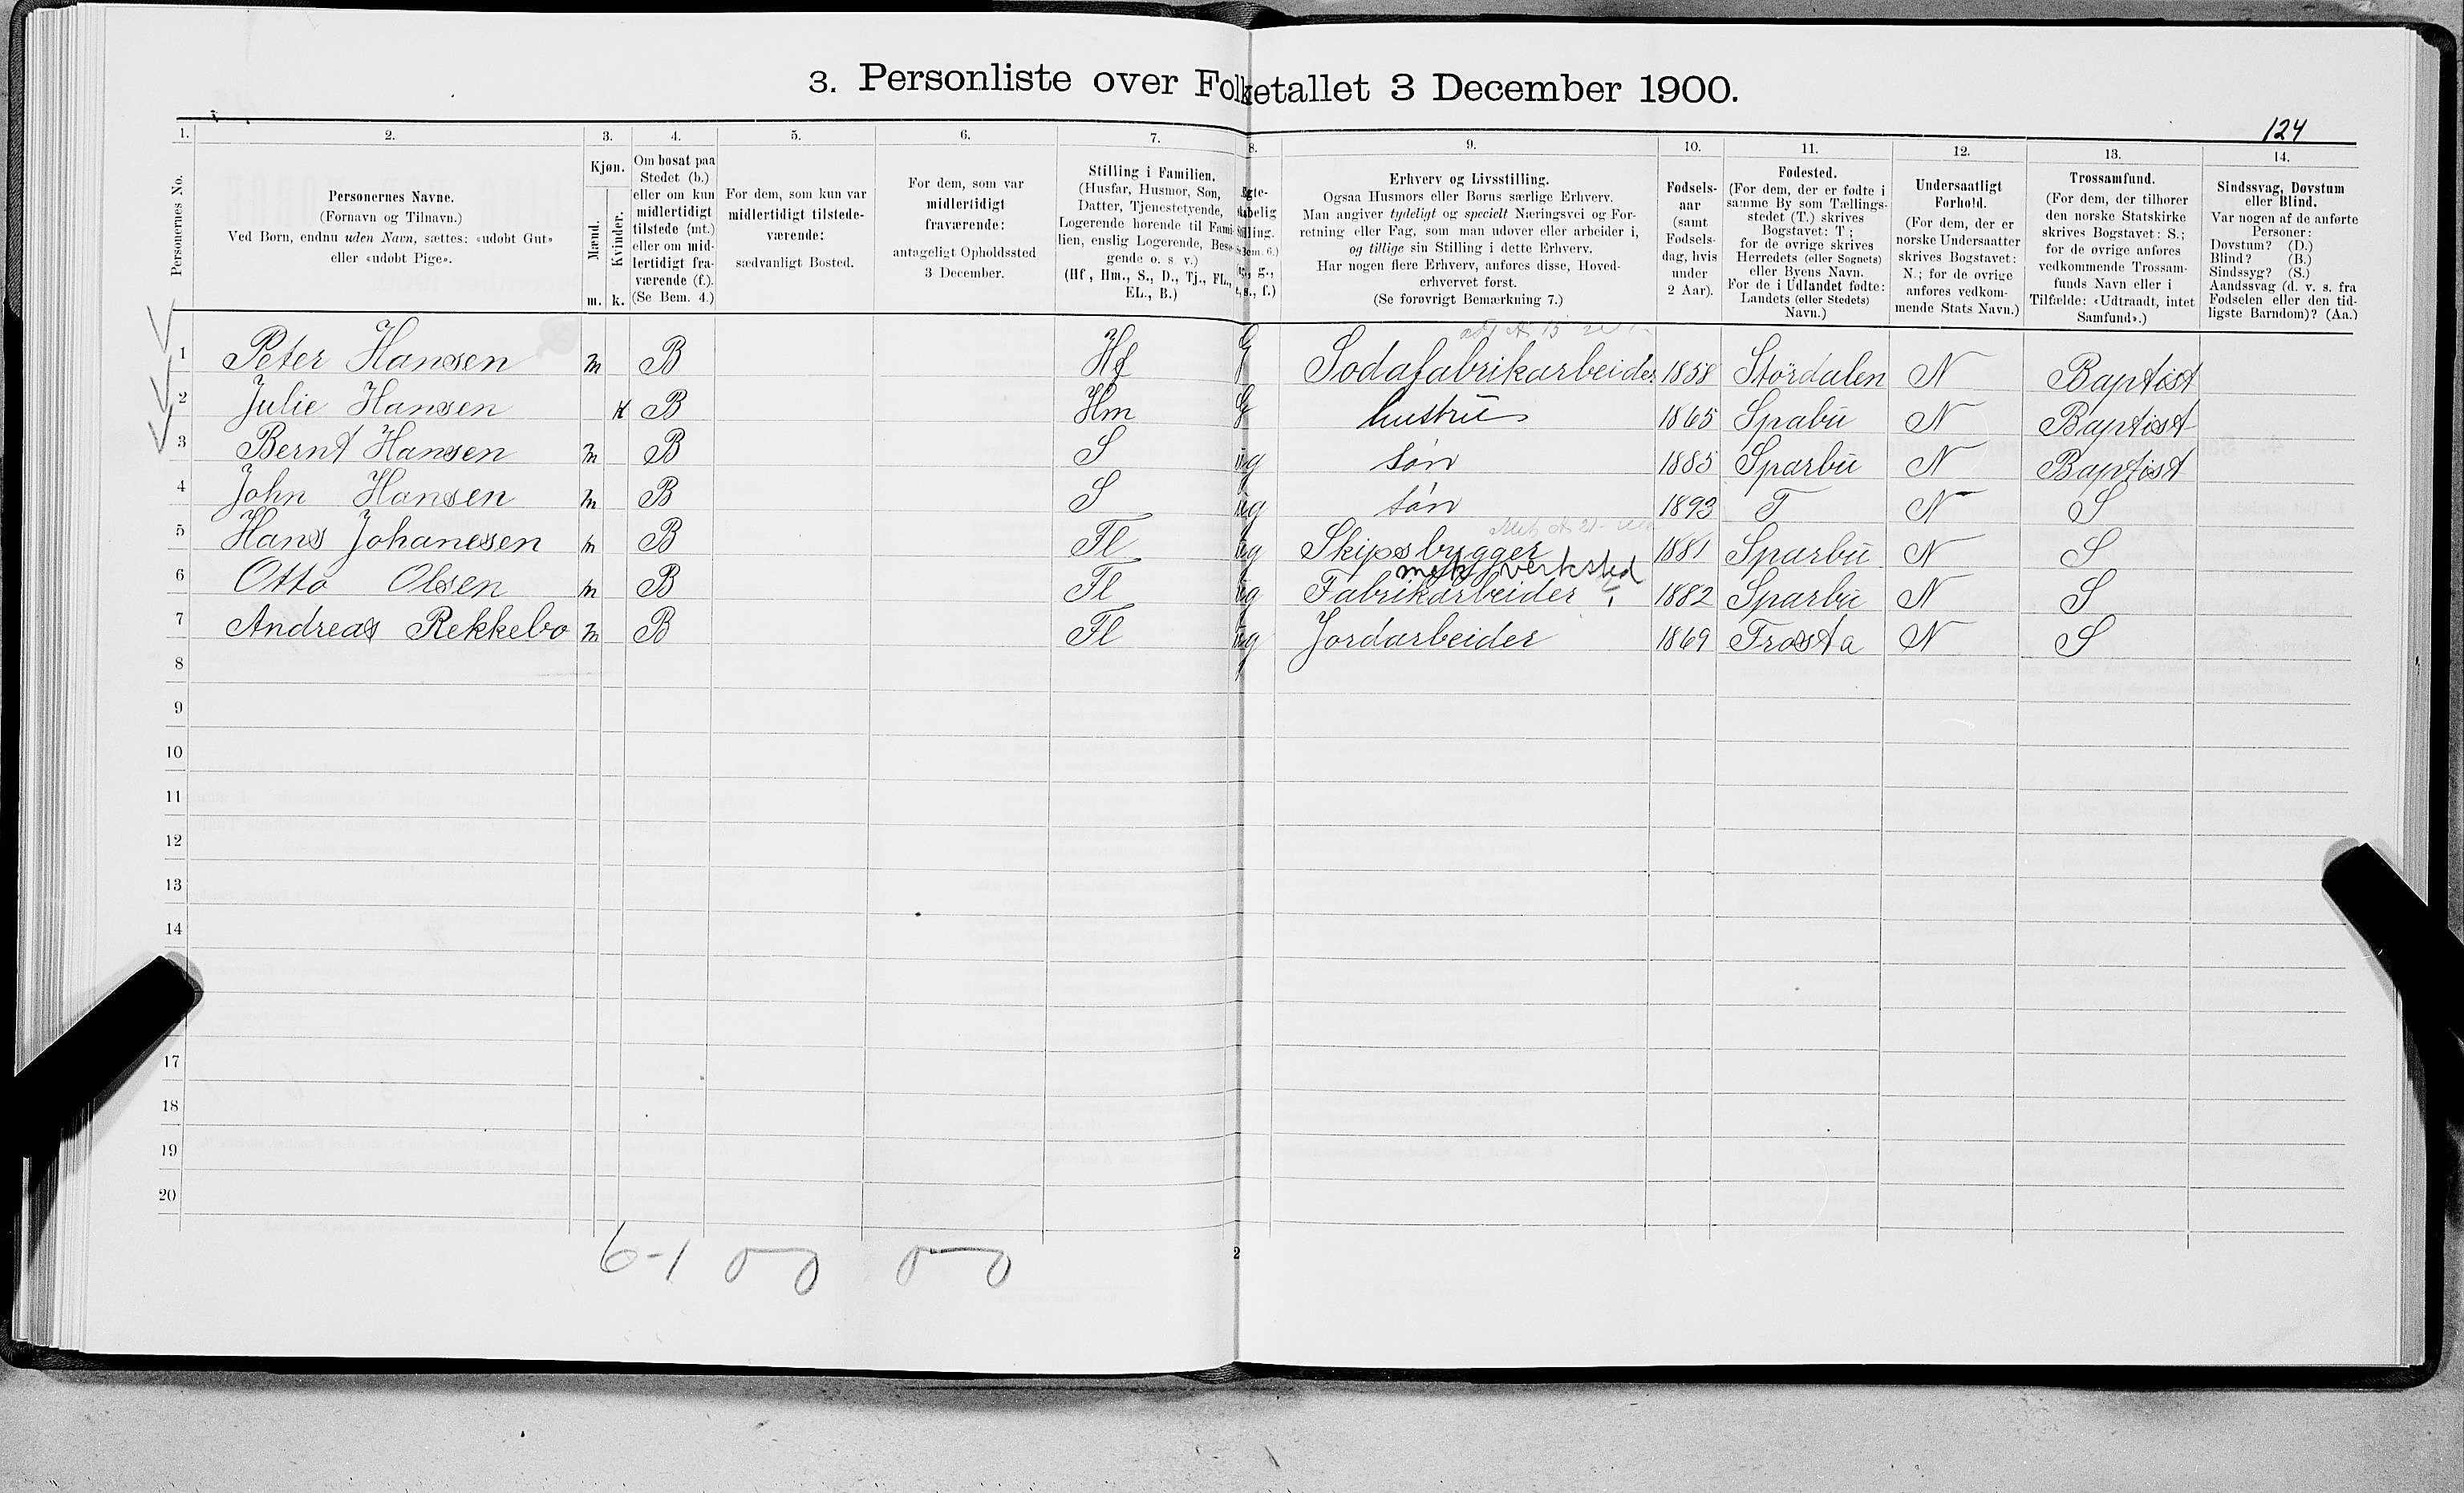 3. Personliste over Folketallet 3 December 1900.
124
1. 2. 3. 4. 5. 6. 7. 8. 9. 10. 11. 12. 13. 14.
Personernes No.
Personernes Navne.
(Fornavn og Tilnavn.)
Ved Børn, endnu uden Navn, sættes: «udøbt Gut»
eller «udøbt Pige».
Kjøn.
Mænd.
Kvinder.
m. k.
Om bosat paa
Stedet (b.)
eller om kun
midlertidigt
tilstede (mt.)
eller om mid-
lertidigt fra-
værende (f.).
(Se Bem. 4.)
For dem, som kun var
midlertidigt tilstede-
værende:
sædvanligt Bosted.
For dem, som var
midlertidigt
fraværende:
antageligt Opholdssted
3 December.
Stilling i Familien.
(Husfar, Husmor, Søn,
Datter, Tjenestetyende,
Logerende hørende til Fami-
lien, enslig Logerende, Besø-
gende o. s v.)
(Hf, Hm., S., D., Tj., FL.,
EL., B.)
Erhverv og Livsstilling.
Ogsaa Husmors eller Børns særlige Erhverv.
Man angiver tydeligt og specielt Næringsvei og For-
retning eller Fag, som man udøver eller arbeider i,
og tillige sin Stilling i dette Erhverv.
Har nogen flere Erhverv, anføres disse, Hoved-
erhvervet først.
(Se forøvrigt Bemærkning 7.)
Fødsels-
aar
(samt
Fødsels-
dag, hvis
under
2 Aar).
Fødested.
(For dem, der er fødte i
samme By som Tællings-
stedet (T.) skrives
Bogstavet: T;
for de øvrige skrives
Herredets (eller Sognets)
eller Byens Navn.
For de i Udlandet fødte:
Landets (eller Stedets)
Navn.)
Undersaatligt
Forhold.
(For dem, der er
norske Undersaatter
skrives Bogstavet:
N.; for de øvrige
anføres vedkom-
mende Stats Navn.)
Trossamfund.
(For dem, der tilhører
den norske Statskirke
skrives Bogstavet: S.;
for de øvrige anføres
vedkommende Trossam-
funds Navn eller i
Tilfælde: «Udtraadt, intet
Samfund».)
Sindssvag, Døvstum
eller Blind.
Var nogen af de anførte
Personer:
Døvstum? (D.)
Blind? (B.)
Sindssyg? (S.)
Aandssvag (d. v. s. fra
Fødselen eller den tid-
ligste Barndom)? (Aa.)
1 Peter Hansen m B Hf G Sodafabrikarbeider 1858 Stördalen N Baptist
2 Julie Hansen K B Hm G hustru 1865 Spabu N Baptist
3 Bernt Hansen m B S ug søn 1885 Sparbu N Baptist
4 John Hansen m B S ug søn 1893 T N S
5 Hans Johanesen m B Fl ug Skipsbygger 1881 Sparbu N S
mek verksted
6 Otto Olsen m B Fl ug Fabrikarbeider i 1882 Sparbu N S
7 Andreas Rekkebo m B Fl ug Jordarbeider 1869 Frosta N S
8
9
10
11
12
13
14
17
18
19
20
6-1 0 0 0 0
2